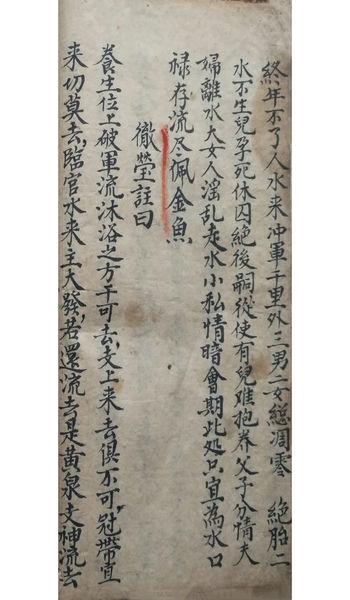 終年不了人水来冲軍千里外三男二女緫凋零　絶胎二
水不生兒孕死休囚絶後嗣從使有兒难抱养父子分情夫
婦離水大女人滛乱走水小私情暗會期此処只宜為水口
禄存流尽佩金魚
徹瑩註曰
養生位上破軍流沐浴之方干可去支上来去俱不可冠帶宜
来切莫去臨官水来主大發若還流去是黃泉支神流去